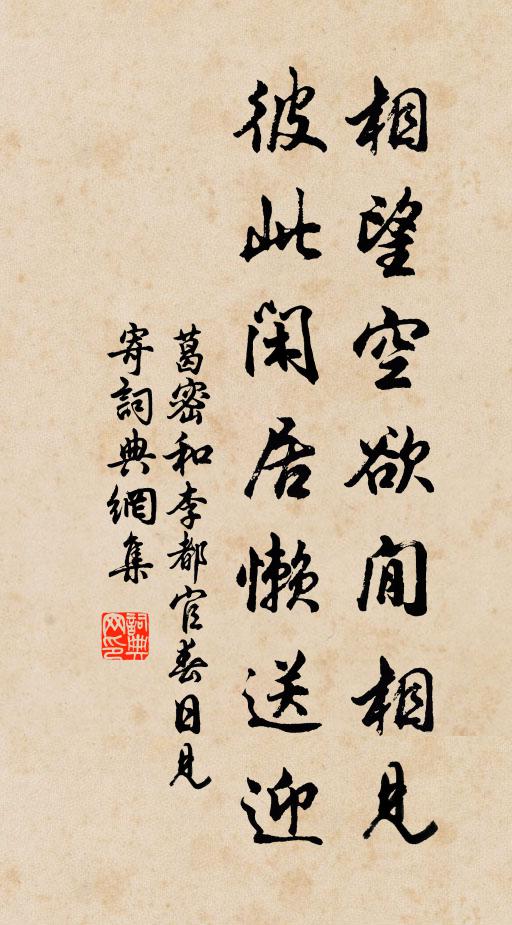 相望空欲閒相見
彼此閑居懶送迎
葛密和李都官春日見
寄詞典網集
詞典网印